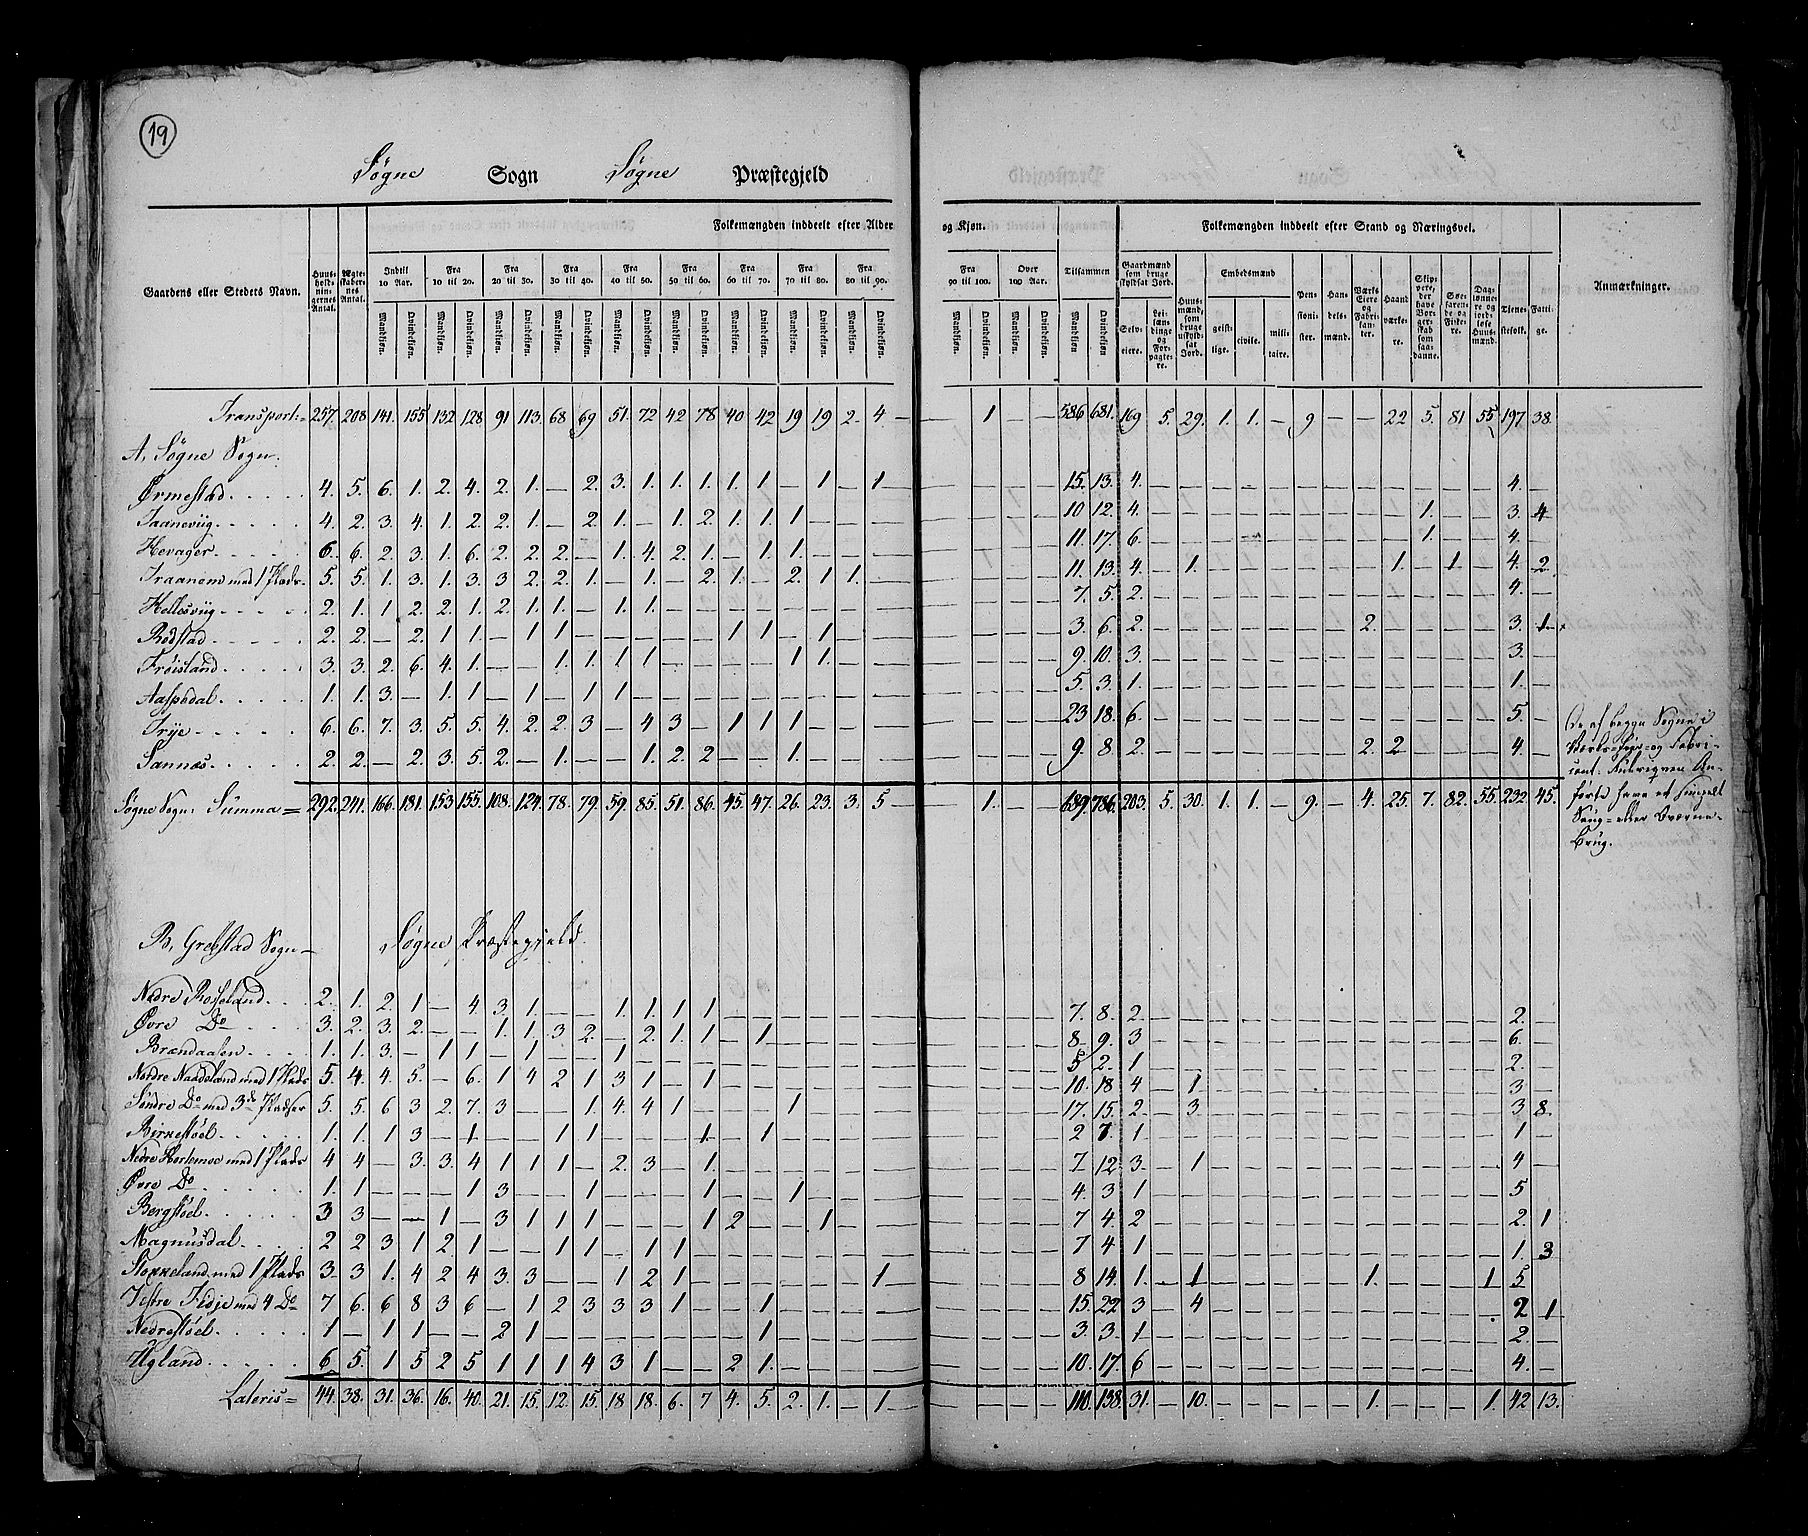 19
Søgne Sogn Søgne Præstegjeld
Folkemængden inddeelt efter Alder og Kjøn. Tilsammen Folkemængden inddeelt efter Stand og Næringsvei.
Gaardens eller Stedets Navn. Huusholdningernes Antal. Ægteskabernes Antal. Indtil 10 Aar. Fra 10 til 20. Fra 20 til 30. Fra 30 til 40. Fra 40 til 50. Fra 50 til 60. Fra 60 til 70. Fra 70 til 80. Fra 80 til 90. Fra 90 til 100. Over 100 Aar. Anmærkninger.
Mandkiøn. Qvindekiøn.
Gaardmænd som bruge skyldsat Jord. Selveiere. Leilændinge og Forpagtere. Huusmænd, som bruge uskyldsat Jord. Embedsmænd geistlige. civile. militaire. Pensionister. Handelsmænd. Værks Eiere og Fabrikanter. Haandværkere. Skippere, der have Borgerskab som saadanne. Søefarende og Fiskere. Daglønnere og jordløse Huusmænd. Tienestefolk. Fattige.
Transport = 257. 208 141. 155 132 128 91 113. 68 69 51. 72 42 78 40 42 19 19 2. 4 — — 1 — — 586 681. 169 5. 29. 1. 1. — 9 — — 22 5. 81 55 197 38.
A, Søgne Sogn.
Ørmestad 4. 5. 6. 1. 2. 4. 2. 1. — 2. 3. 1. 1. 1. 1. 1. — 1. — 1 15. 13. 4. 4.
Taanevig 4. 2. 3. 4. 1. 2. 2. 1. — 2. 1. — 1. 2. 1. 1. 1 — — — 10 12. 4. 1. 3. 4
Hevager 6. 6. 2. 3. 1. 6. 2. 2. 2. — 1. 4. 2. 1. — 1. 1. — — — 11. 17. 6. 1. 4.
Traanem med 1 Plads 5. 5. 1. 3. 1. 3. 3 2. 2. 1. — 1. — 2. 1. — 2. 1 1. — 11. 13. 4. 1. 1. 1 4. 2
Hellesviig 2. 1. 1 2. 2. 1. 2. 1. 1. — 1. 1. — — — — — — — — 7. 5. 2. 4.
Rodstad 2. 2. — 2. 1 1. — 1 1. — — — — — 1 1. — 1. — — 3. 6. 2. 2. 3. 1
Frøisland 3. 3. 2. 6. 4. 1. — — 1. 1. 1. 1 — — — — 1 1. — — 9. 10. 3. 3.
Aaspedal 1. 1. 3 — 1. 1 — 1 — 1 1. — — — — — — — — — 5. 3. 1. 1.
Trye 6. 6. 7. 3. 5. 5. 4. 2. 2. 3 — 4 3 — 1 1 1. — — — 23 18. 6. 5.
Sannæs 2. 2. — 2. 3. 5. 2. — 1. — — 1. 2. 2 — — 1. — — — 9. 8. 2. 2. 2 4.
Søgne Sogn: Summa = 292. 241. 166. 181. 153. 155. 108. 124. 78. 79. 59. 85. 51. 86. 45. 47. 26. 23. 3. 5 — — 1. — — 689. 786. 203. 5. 30. 1. 1. — 9. — 4. 25. 7. 82. 55. 232 45.
De af begge Sogne i
Værks-Eier- og Fabri-
cant- Rubriqven An-
førte have et simpelt
Saug- eller Qværne-
Brug.
B, Greipstad Sogn — Søgne Præstegjeld.
Nedre Rosseland 2. 1. 2. 1 — 4 3 1. — — 1. 1. 1 1 — — — — — — 7. 8. 2. 2.
Øvre Do 3. 2. 3. 2. — — 1 1. 3 2. — 2. 1 1. — 1 — — — — 8. 9. 3 6.
Brændaasen 1. 1. 3. — 1 1 — 1. — — 1 — — — — — — — — — 5 2. 1 2.
Nordre Naadeland med 1 Plads 5. 4. 4. 5. — 6. 1 4 2 1 3 1 — 1 — — — — — — 10. 18. 4 1. 3
Søndre Do med 3de Pladser 5. 5. 6 3 2. 7. 3 — — 1. 4. 4 1 — — — 1 — — — 17. 15. 2 3. 3 8.
Birkestøel 1. 1. 1 3 — 1 — — 1 1 — — — 1. — 1. — — — — 2 7. 1. 1
Nedre Hortemoe med 1 Plads 4 4 — 3. 3. 4 1 1 1 — 2. 3 — 1. — — — — — — 7 12. 3. 1 4
Øvre Do 1. 1 — — — 1 3 — — 1 — — — 1 — — 1 — — — 4. 3 1 5
Bergstøel 3 3 — — 1 — 3 1 1 1 — — — 1 2 — — 1. — — 7 4. 2 2. 1
Magnusdal 2 2 3 1 2 1 — — 1 1 — 1 1 — — — — — — — 7 4 1 1. 3
Stokkeland med 1 Plads 3 3 1. 4 2 4 3. 3 — — 1 2 1 — — — — — — 1 8 14. 1. 1 1. 1 5
Vestre Tidje med 4 Do 7 6. 6 8 3 6 — 1 2 3 3 3 1 — — 1 — — — — 15. 22 3 4 2 1
Nedrestøel 1 — 1 1 — — 2 1 — — — — — — — 1 — — — — 3. 3. 1 2.
Ugland 6 5. 1 5 2 5 1 1 1 4 3 1 — — 2 1. — — — — 10. 17 6 4.
Lateris = 44. 38. 31. 36. 16. 40. 21. 15. 12. 15. 18 18. 6. 7 4. 5. 2. 1. — 1 — 110. 138. 31. — 10. — 1. — 1. 42 13.